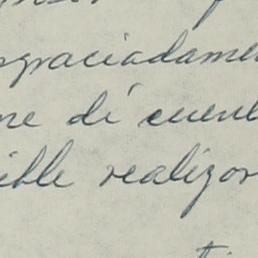 sgraciadamen
me dí cuent
ible realizar